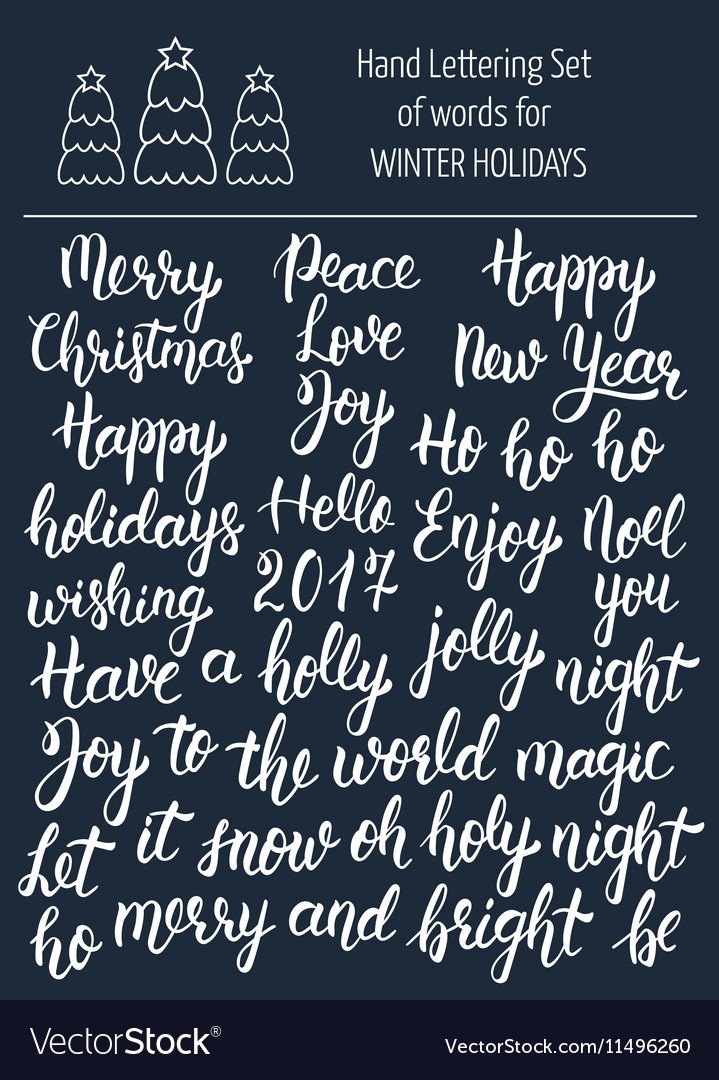 Hand Lettering Set
of words for
WINTER HOLIDAYS
Merry Peace Happy
Christmas Love New Year
Happy Joy Ho ho ho
holidays Hello Enjoy Noel
wishing 2017 you
Have a holly jolly night
Joy to the world magic
Let it snow oh holy night
ho merry and bright be
VectorStock®
VectorStock.com/11496260